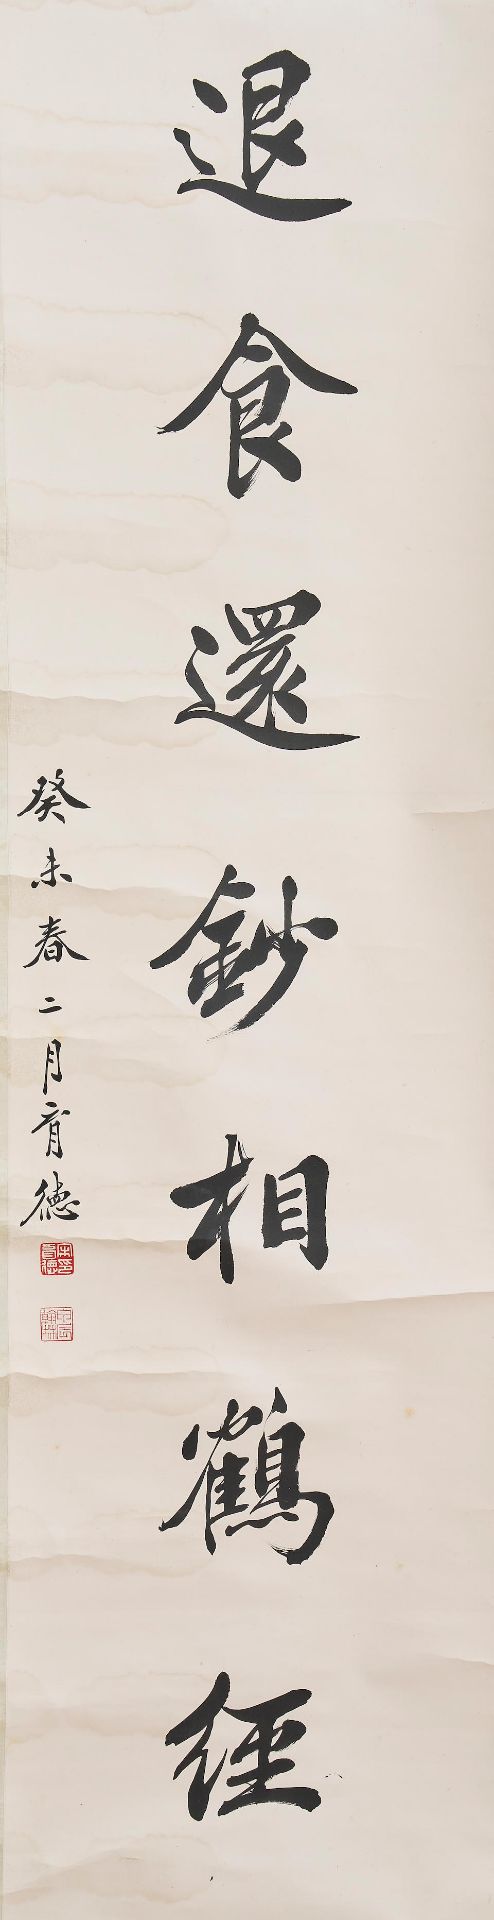 退食還鈔相鶴經
癸未春二月育德